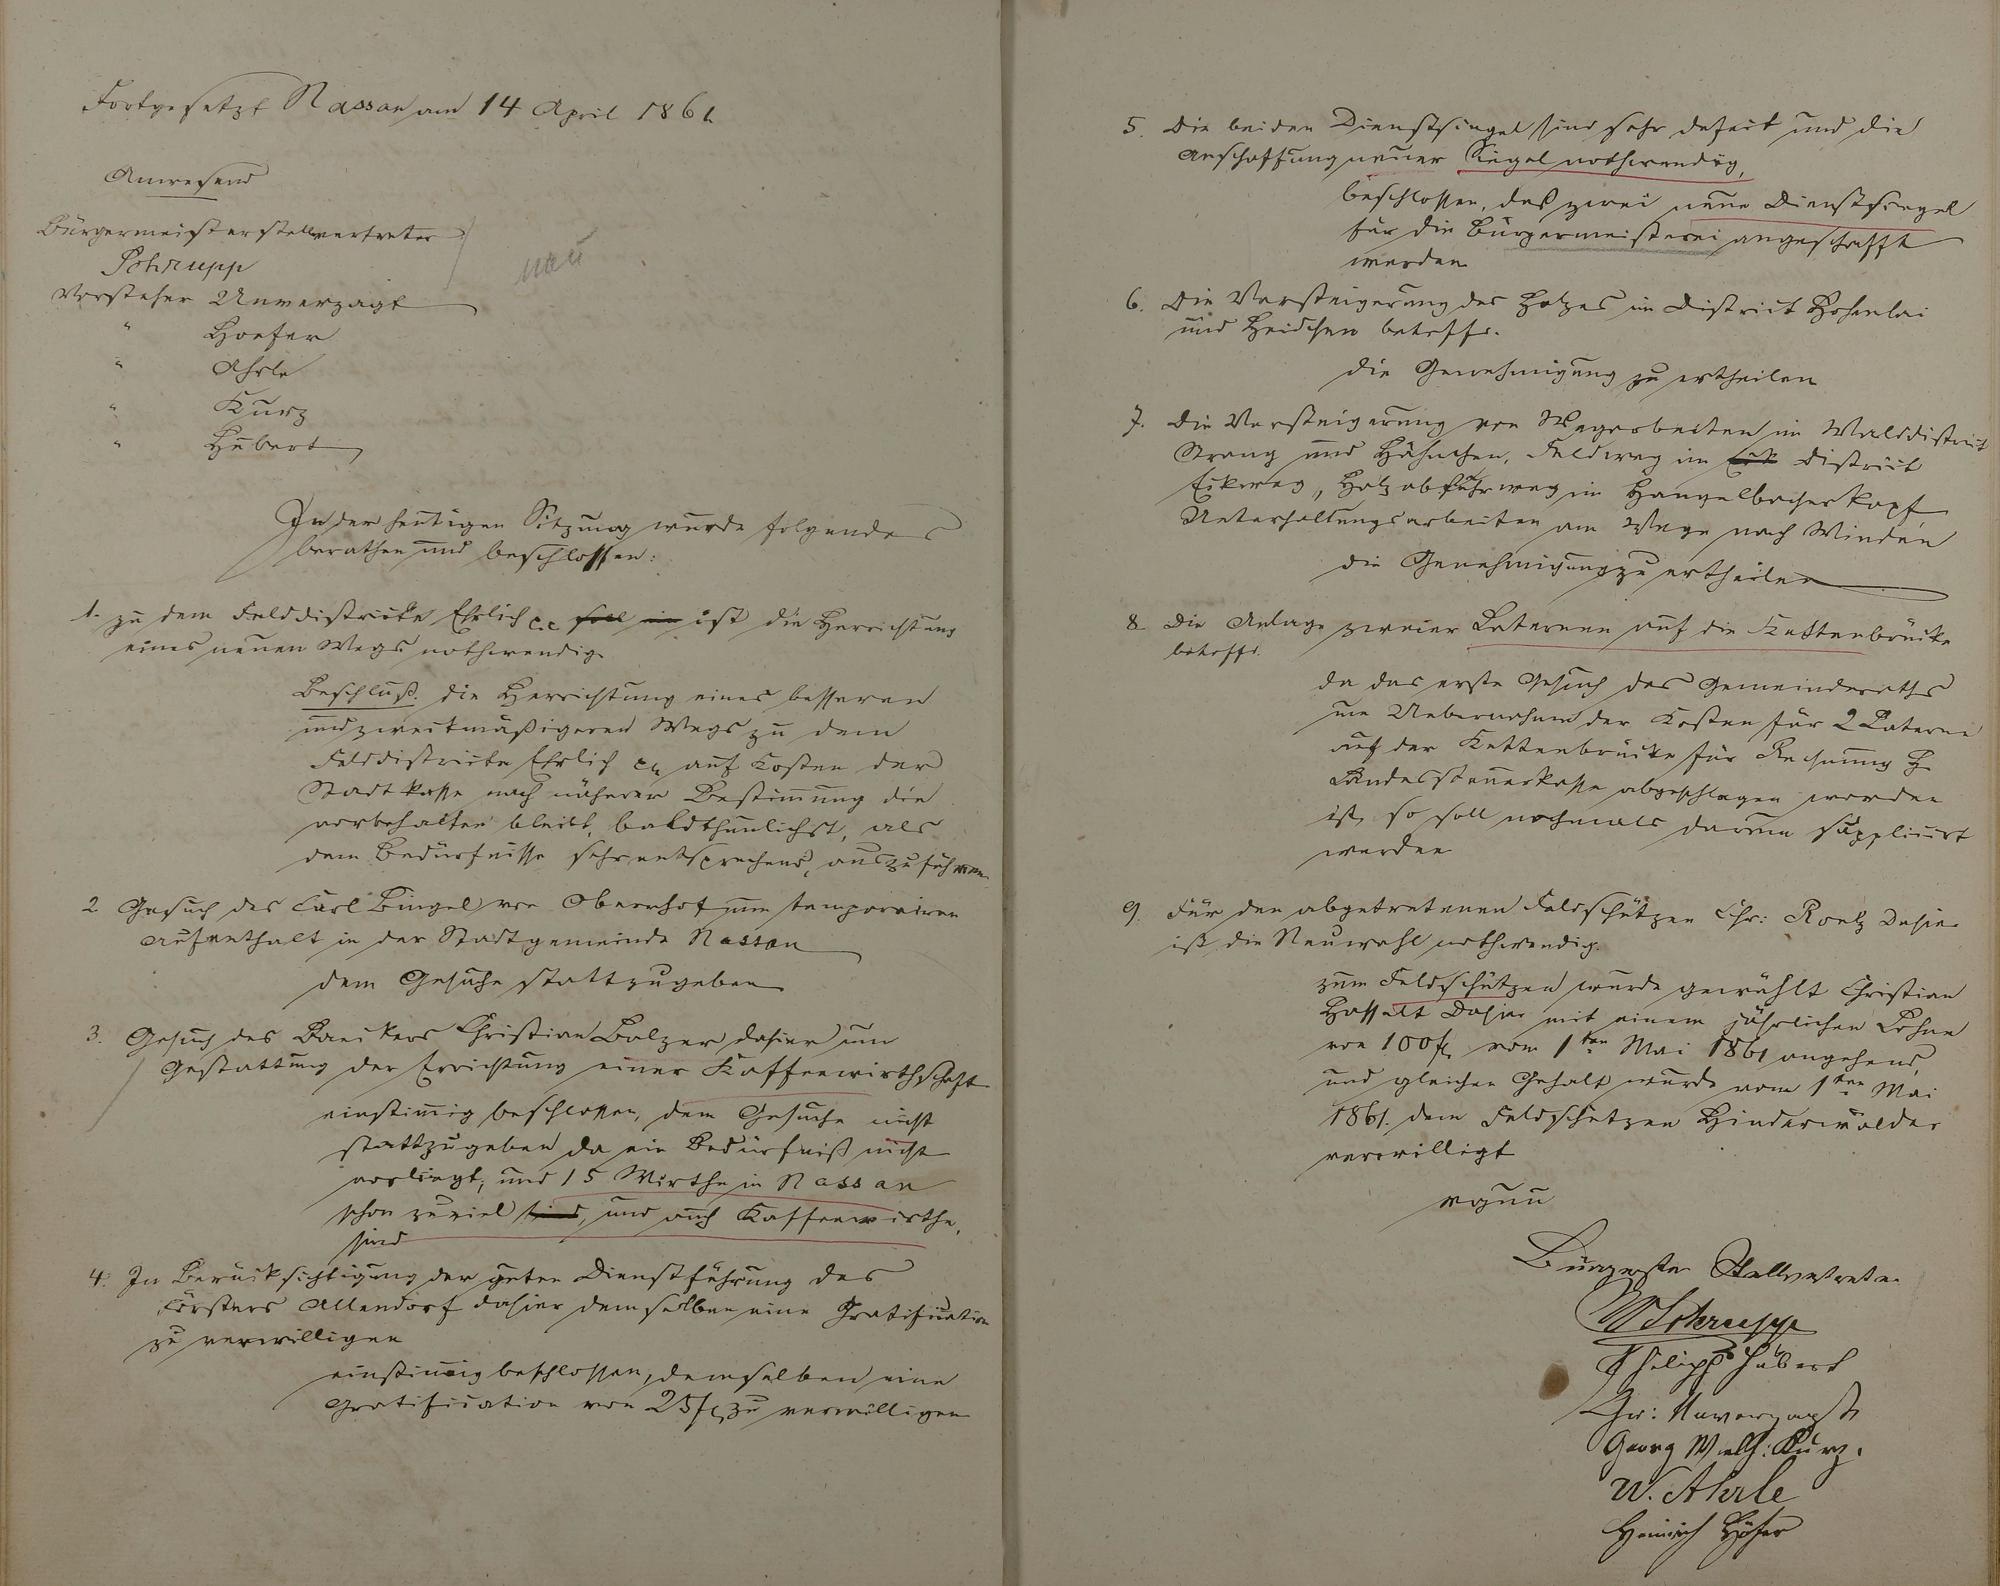 Fortgesetzt Nassau am 14 April 1861
Anwesend
Bürgermeisterstellvertreter
Schrupp
Vorsteher Unverzagt
" Hoefer
" Ahrle
" Kurz
" Hubert
In der heutigen Sitzung wurde folgendes
berathen und beschlossen:
1. zu dem Felddistrikte Ehrlich c.c. soll im ist die Herrichtung
eines neuen Wegs nothwendig
Beschluß. die Herrichtung eines besseren
und zweckmäßigeren Wegs zu dem
Felddistricte Ehrlich auf Kosten der
Stadtkasse nach näherer Bestimmung die
vorbehalten bleibt, baldthunlichst, als
dem Bedürfnisse sehr entsprechend, auszuführen
2 Gesuch des Carl Bingel von Obernhof um temporairen
Aufenthalt in der Stadtgemeinde Nassau
dem Gesuche stattzugeben
3. Gesuch des Christian Balzer dahier um
Gestattung der Errichtung einer Kaffeewirthschaft
einstimig beschlossen, dem Gesuche nicht
stattzugeben da ein Bedürfniß nicht
vorliegt, und 15 Wirthe in Nassau
schon zuviel sind, und auch Kaffeewirthe,
sind
4. In Berücksichtigung der guten Dienstführung des
Försters Allendorf dahier demselben eine Gratification
zu verwilligen
einstimig beschlossen, demselben eine
Gratification von 25 fl. zu verwilligen
5. Die beiden Dienstsiegel sind sehr defect und die
Anschaffung neuer Siegel nothwendig,
beschlossen, daß zwei neue Dienstsiegel
für die Bürgermeisterei angeschafft
werden
6. Die Versteigerung des Holzes im District Hohenlai
und Heidchen betreffd.
die Genehmigung zu ertheilen
7. Die Versteigerung von Wegarbeiten im Walddistrict
Strang und Hähnchen, Feldweg im District
Holzabfuhrweg im Hangelbacherkopf
Unterhaltungsarbeiten am Wege nach Winden
die Genehmigung zu ertheilen
8 Die Anlage zweier Laternen auf die Kettenbrücke
betreffd.
da das erste Gesuch des Gemeinderaths
um Uebernahme der Kosten für 2 Laterne
auf der Kettenbrücke für Rechnung H.
Landessteuerkasse abgeschlagen worden
ist, so soll nochmals darum supplicirt
werden
9. Für den abgetretenen Feldschützen Chr: dahier
ist die Neuwahl nothwendig.
zum Feldschützen wurde gewählt Christian
dahier mit einem jährlichen Lohne
von 100 fl. vom 1ten Mai 1861 angehend
und gleichen Gehalt wurde vom 1ten Mai
1861. dem Feldschützen Hinderwälder
verwilligt
vgnu
Bürgerstr Stellvertreter
W Schrupp
Philipp Hubert
Chr: Unverzagt
Georg Wilh: Kurz.
W. Ahrle
Heinrich Höfer